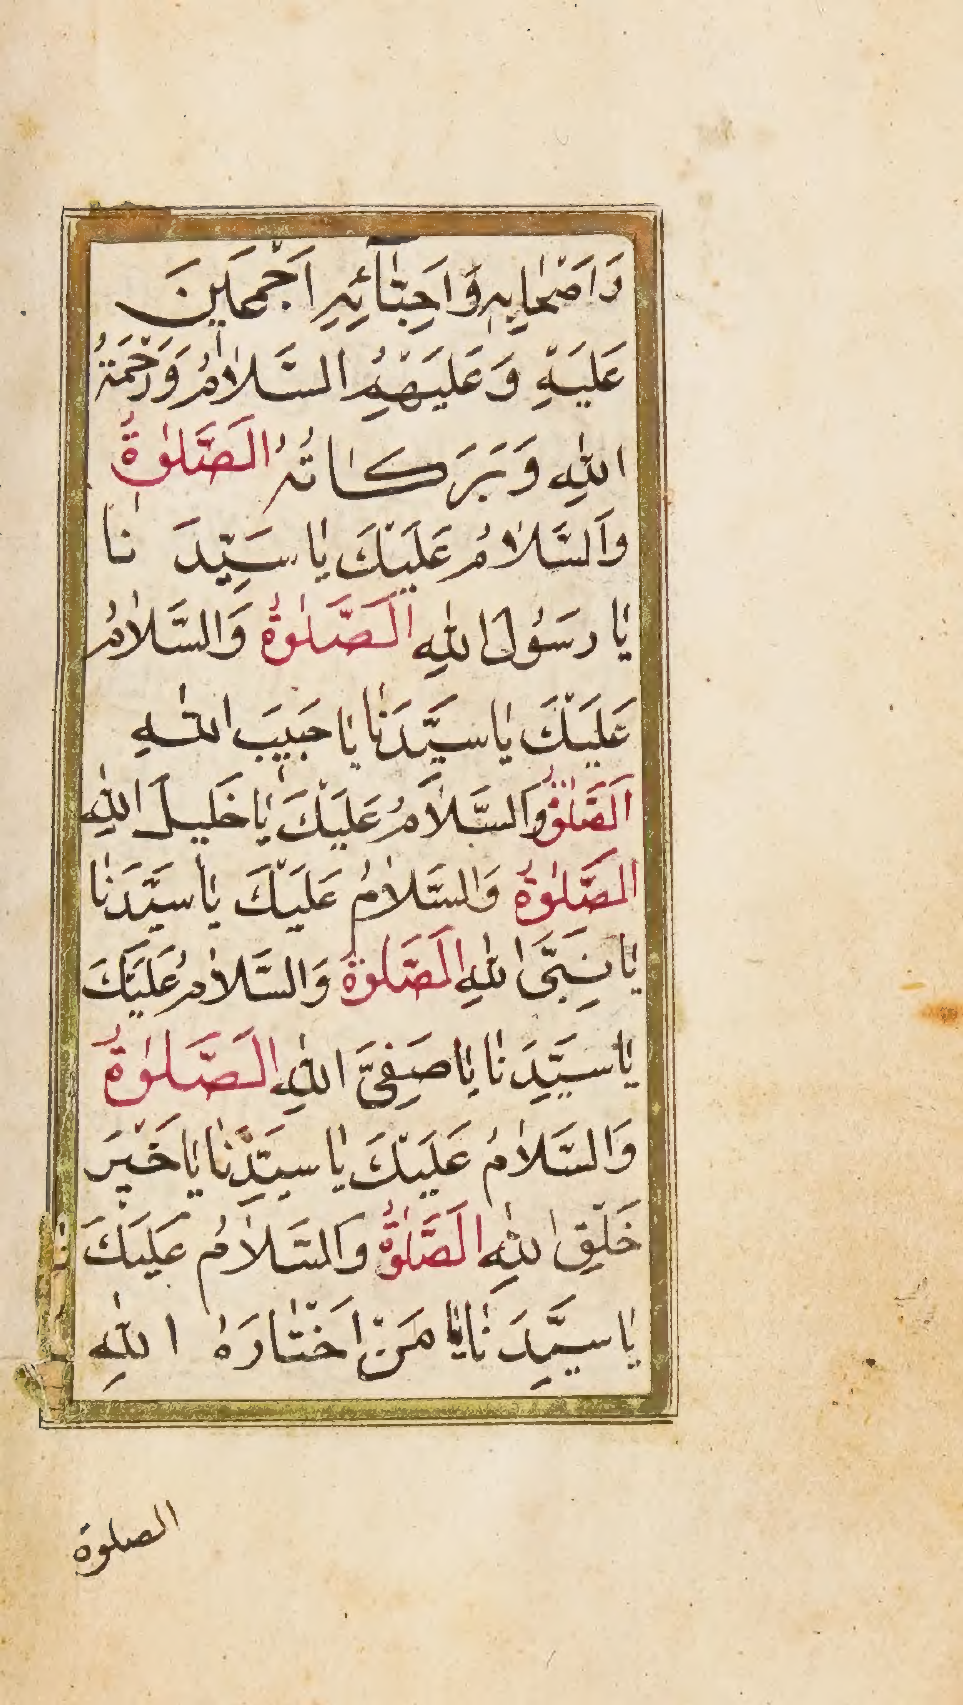 وَاَصْحٰابِهٖ وَاَحِبّٰآئِهِ اَجْمَعَينَ
عَلَيَهِ وَعَلَيَهْمُِ السَّلاٰمُ وَرَحْمَةُ
اللهِ وَبَرَكٰاتُهُ الَصَّلوٰةُ
وَاَلسَّلاٰمُ عَلَيَكَ يٰا سَيِّدَنٰا
يٰا رَسُولَ اللهِ الَصَّلوٰةُ وَالسَّلاٰمُ
عَلَيَكَ يٰا سَيِّدَنٰا يٰا حَبِيَبَ اللهِ
اَلصَّلوٰةُ وَالسَّلاٰمُ عَلَيَكَ يٰا خَليلَ اللهِ
الصَّلوٰةُ وَالسَّلاٰمُ عَلَيَكَ يٰا سَيِّدَنٰا
يٰا نَبِىَّ اللهِ الصَّلوٰةُ وَالسَّلاٰمُ عَلَيَكَ
يٰا سَيِّدَنٰا يٰا صَفِىَّ اللهِ الَصَّلوٰةُ
وَالسَّلاٰمُ عَلَيَكَ يٰا سَيِّدَنٰا يٰا خَيْرَ
خَلْقِ اللهِ الَصَّلوٰةُ وَالسَّلاٰمُ عَلَيَكَ
يٰا سَيِّدَنٰا يٰا مَنْ اَخْتٰارَهُ اللهِ
الصلوة